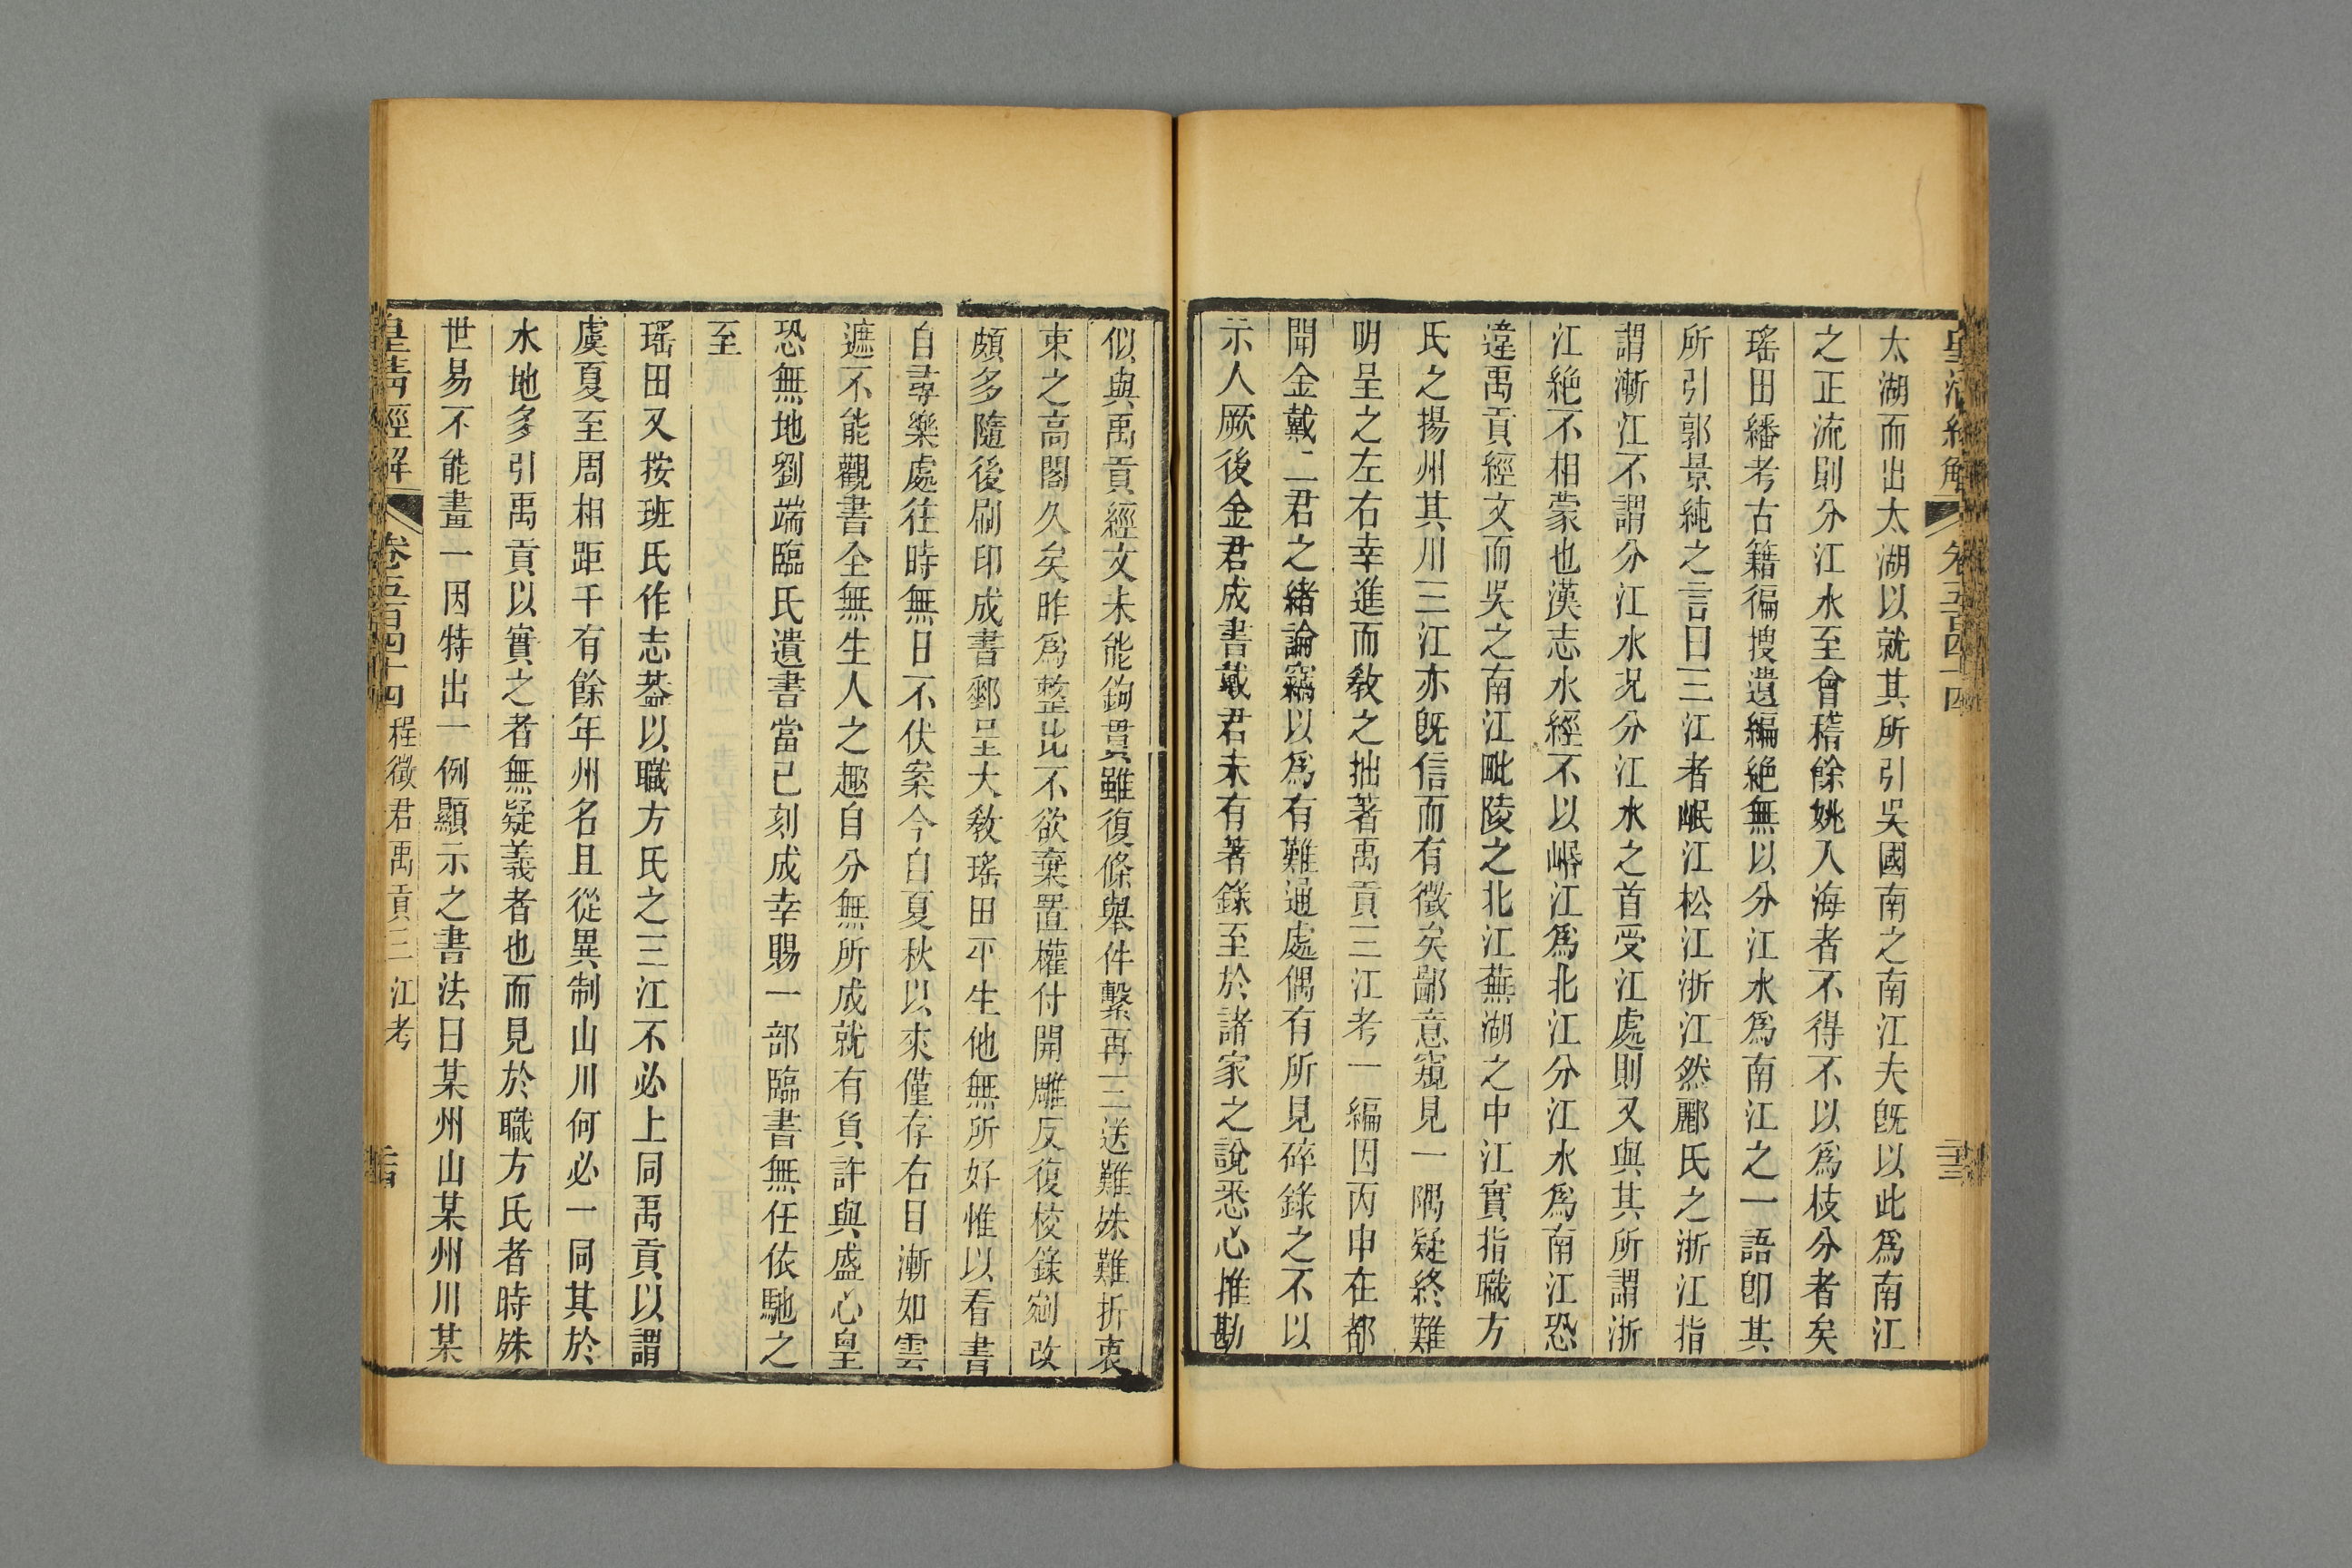 皇清經解 卷五百四十四
太湖而出太湖以就其所引吳國南之南江夫旣以此爲南江
之正流則分江水至會稽餘姚入海者不得不以爲枝分者矣
瑤田繙考古籍徧搜遺編絕無以分江水爲南江之一語卽其
所引郭景純之言曰三江者岷江松江浙江然酈氏之浙江指
謂漸江不謂分江水況分江水之首受江處則又與其所謂浙
江絕不相蒙也漢志水經不以㟭江爲北江分江水爲南江恐
違禹貢經文而吳之南江毗陵之北江蕪湖之中江實指職方
氏之揚州其川三江亦旣信而有徵矣鄙意窺見一隅疑終難
明呈之左右幸進而敎之拙著禹貢三江考一編因丙申在都
聞金戴二君之緒論竊以爲有難通處偶有所見碎錄之不以
示人厥後金君成書戴君未有著錄至於諸家之說悉心推勘
似與禹貢經文未能鉤貫雖復條舉件繫再三送難殊難折衷
束之高閣久矣昨爲整比不欲棄置權付開雕反復校錄剜改
頗多隨後刷印成書郵呈大敎瑤田平生他無所好惟以看書
自尋樂處往時無日不伏案今自夏秋以來僅存右目漸如雲
遮不能觀書全無生人之趣自分無所成就有負許與盛心皇
恐無地劉端臨氏遺書當已刻成幸賜一部臨書無任依馳之
至
瑤田又按班氏作志葢以職方氏之三江不必上同禹貢以謂
虞夏至周相距千有餘年州名且從異制山川何必一同其於
水地多引禹貢以實之者無疑義者也而見於職方氏者時殊
世易不能畫一因特出一例顯示之書法曰某州山某州川某
皇清經解 卷五百四十四 程徵君禹貢三江考